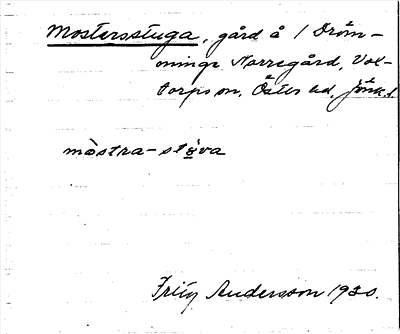 Mostersstuga, gård å 1 Dröm-
minge Norregård, Vol-
torps sn, Östra hd, Jönk. l.
mòstra-stùva
Frity Andersson 1930.